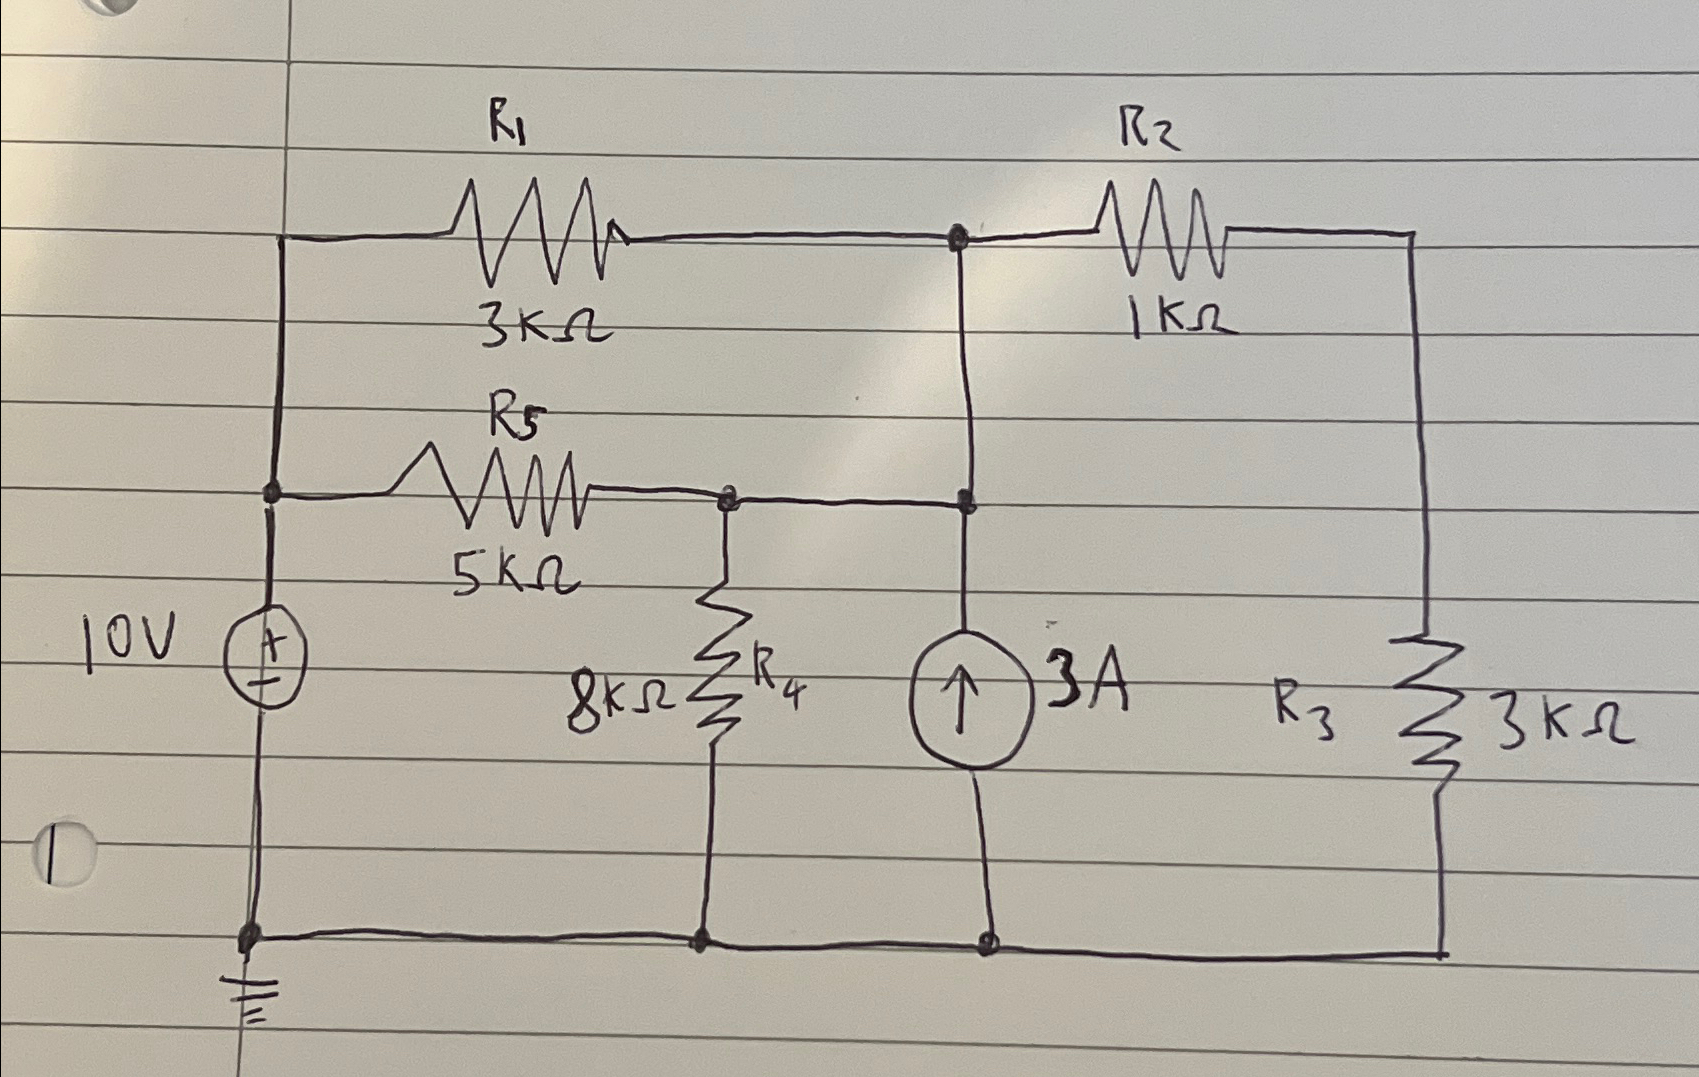 R1
R2
3KΩ
1KΩ
R5
5KΩ
10V
+
−
8KΩ
R4
3A
R3
3KΩ